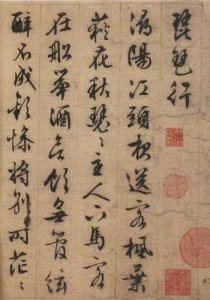 琵琶行
潯陽江頭夜送客楓葉
荻花秋瑟〻主人下馬客
在船舉酒欲飲無管絃
醉不成歡慘將別別時茫〻